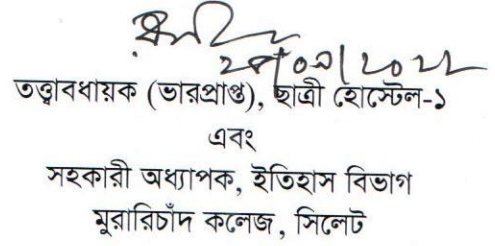 তত্ত্বাবধায়ক (ভারপ্রাপ্ত), ছাত্রী হোস্টেল-১
এবং
সহকারী অধ্যাপক, ইতিহাস বিভাগ
মুরারিচাঁদ কলেজ, সিলেট